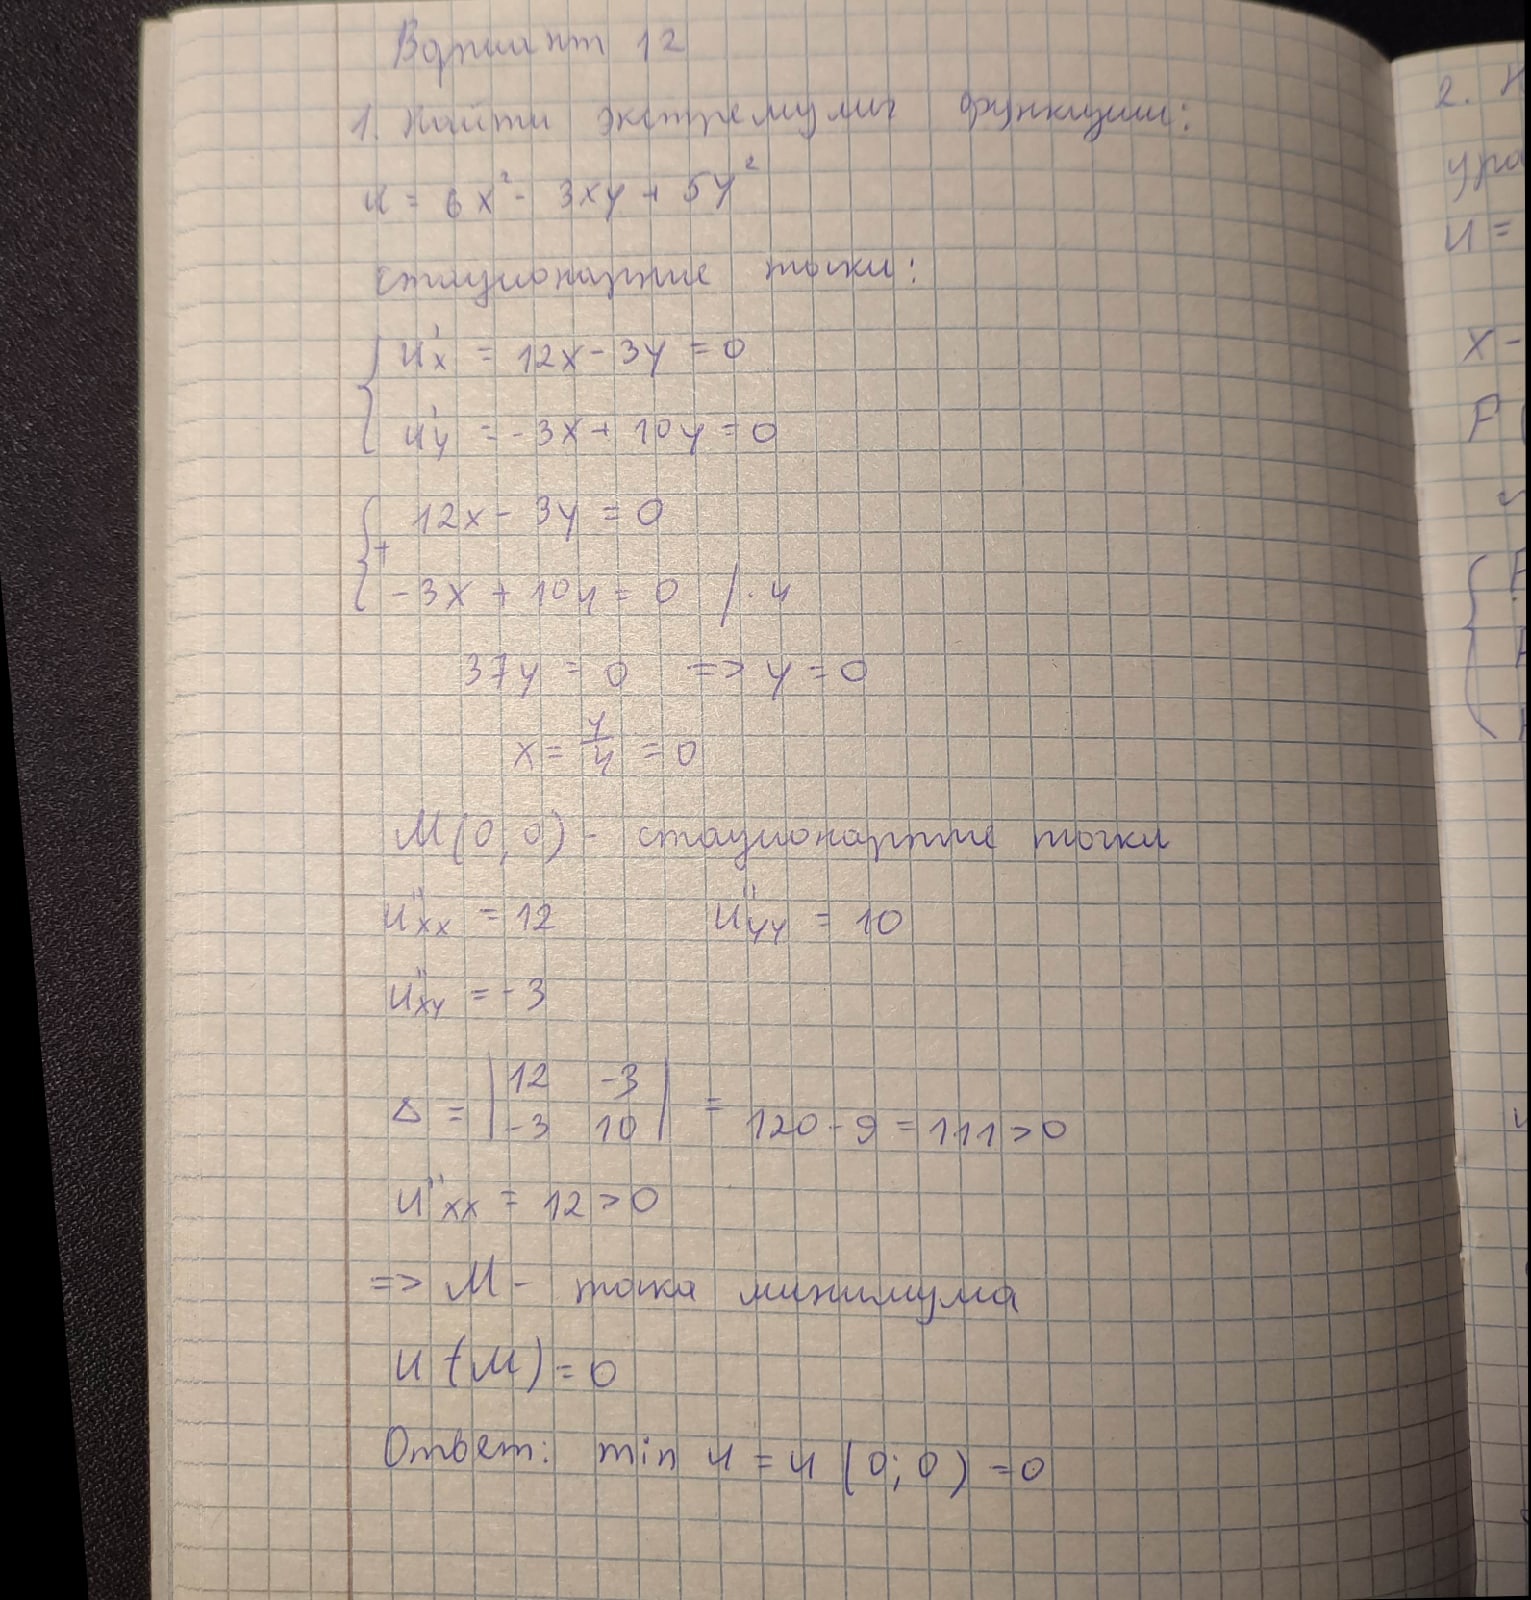 Вариант 12
1. Найти экстремумы функции:
u = 6x² - 3xy + 5y²
стационарные точки:
u'x = 12x - 3y = 0
u'y = -3x + 10y = 0
12x - 3y = 0
+
-3x + 10y = 0 / · 4
37y = 0 => y = 0
x = y/4 = 0
M(0, 0) - стационарные точки
u''xx = 12 u''yy = 10
u''xy = -3
Δ = |12 -3|
|-3 10| = 120 - 9 = 111 > 0
u''xx = 12 > 0
=> M - точка минимума
u(M) = 0
Ответ: min u = u (0; 0) = 0
2.
ура
u =
x -
F